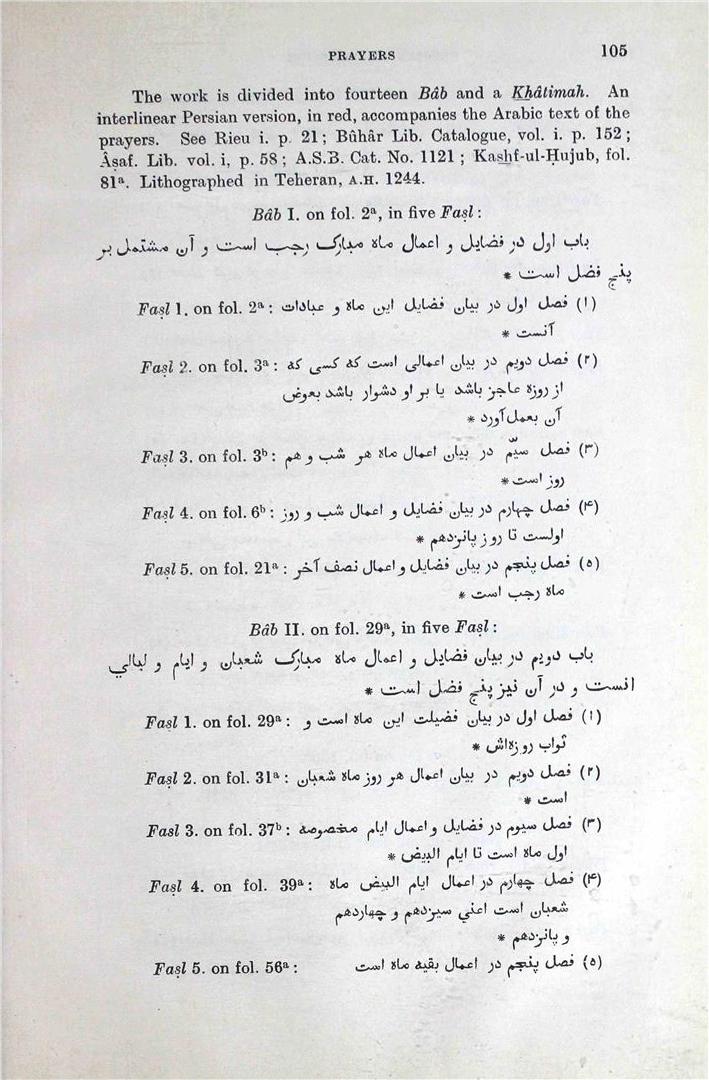 PRAYERS 105
The work is divided into fourteen Bâb and a Khâtimah. An
interlinear Persian version, in red, accompanies the Arabic text of the
prayers. See Rieu i. p. 21; Bûhâr Lib. Catalogue, vol. i. p. 152;
Âṣaf. Lib. vol. i, p. 58; A.S.B. Cat. No. 1121; Kashf-ul-Ḥujub, fol.
81ᵃ. Lithographed in Teheran, A.H. 1244.
Bâb I. on fol. 2ᵃ, in five Faṣl:
باب اول در فضایل و اعمال ماه مبارک رجب است و آن مشتمل بر
پنج فضل است *
Faṣl 1. on fol. 2ᵃ: (۱) فصل اول در بیان فضایل این ماه و عبادات
آنست *
Faṣl 2. on fol. 3ᵃ: (۲) فصل دویم در بیان اعمالی است که کسی که
از روزه عاجز باشد یا بر او دشوار باشد بعوض
آن بعمل آورد *
Faṣl 3. on fol. 3ᵇ: (۳) فصل سیّم در بیان اعمال ماه هر شب و هم
روز است *
Faṣl 4. on fol. 6ᵇ: (۴) فصل چهارم در بیان فضایل و اعمال شب و روز
اولست تا روز پانزدهم *
Faṣl 5. on fol. 21ᵃ: (۵) فصل پنجم در بیان فضایل و اعمال نصف آخر
ماه رجب است *
Bâb II. on fol. 29ᵃ, in five Faṣl:
باب دویم در بیان فضایل و اعمال ماه مبارک شعبان و ایام و لیالي
انست و در آن نیز پنج فضل است *
Faṣl 1. on fol. 29ᵃ: (۱) فصل اول در بیان فضیلت این ماه است و
ثواب روزه‌اش *
Faṣl 2. on fol. 31ᵃ: (۲) فصل دویم در بیان اعمال هر روز ماه شعبان
است *
Fasl 3. on fol. 37ᵇ: (۳) فصل سیوم در فضایل و اعمال ایام مخصوصه
اول ماه است تا ایام البیض *
Faṣl 4. on fol. 39ᵃ: (۴) فصل چهارم در اعمال ایام البیض ماه
شعبان است اعني سیزدهم و چهاردهم
و پانزدهم *
Faṣl 5. on fol. 56ᵃ: (۵) فصل پنجم در اعمال بقیه ماه است